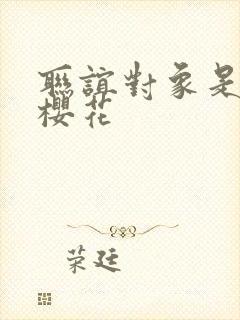 聯誼對象是
櫻花
荣廷